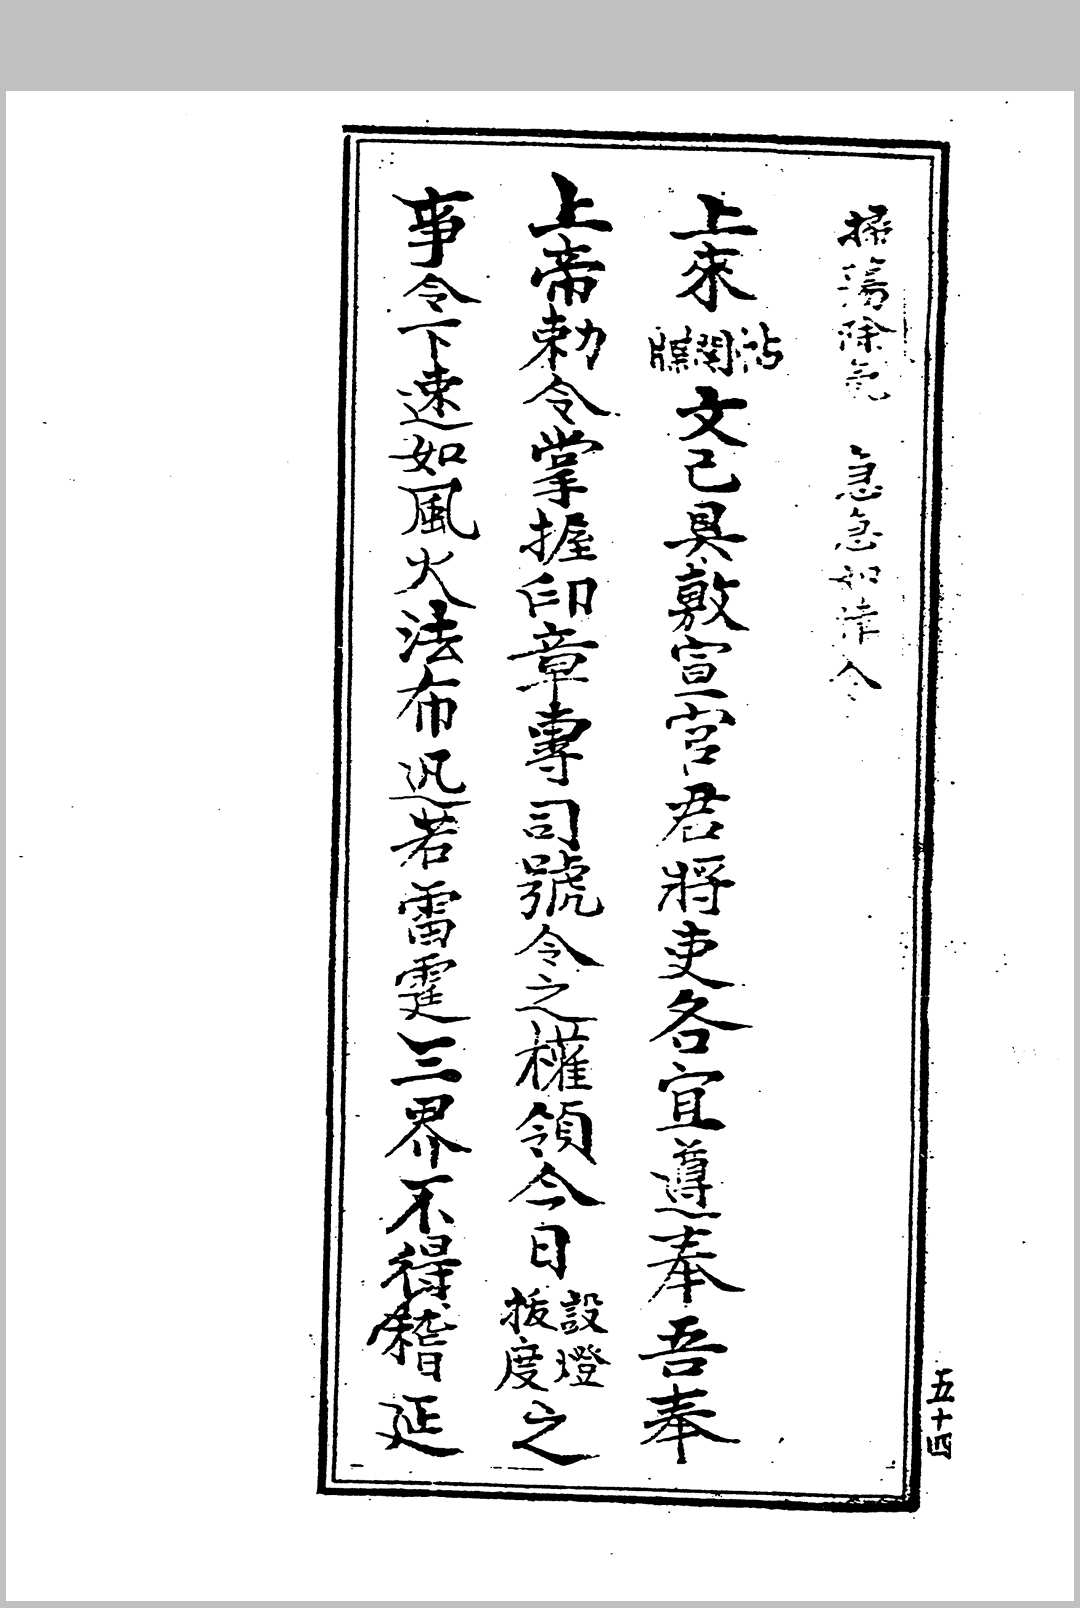 掃蕩除氛　急急如律令
上來沾関牒文已具敷宣官君將吏各宜遵奉吾奉
上帝勅令掌握印章專司號令之權領今日設燈拔度之
事令下速如風火法布迅若雷霆三界不得稽延
五十四